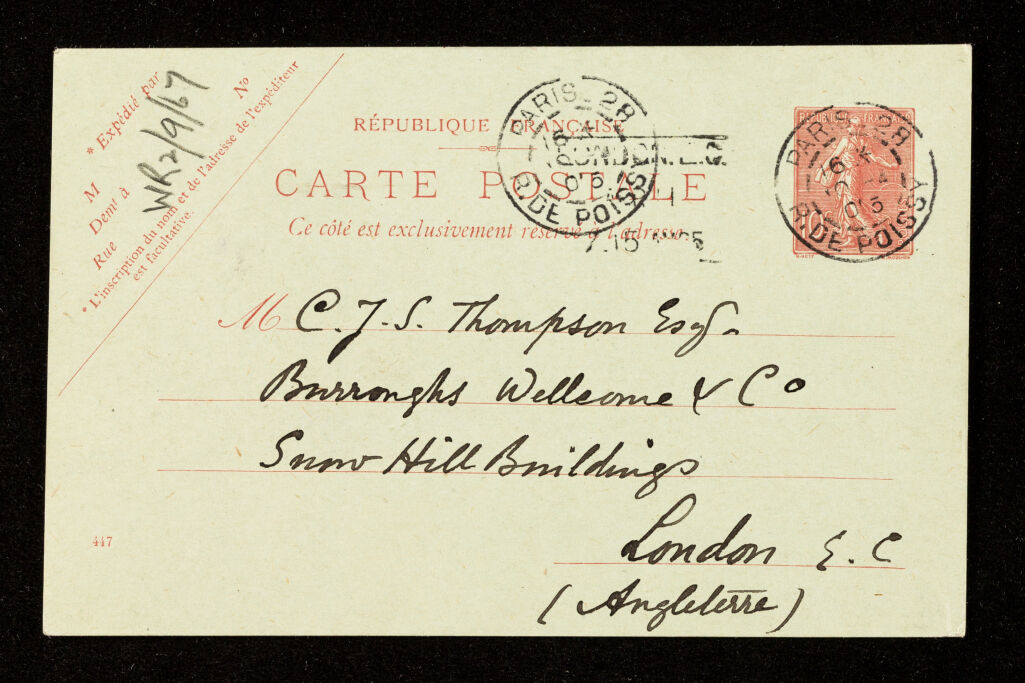 * Expédié par
WR2/9/67
M
Demt à
Rue
No
* L'inscription du nom et de l'adresse de l'expéditeur
est facultative.
RÉPUBLIQUE FRANÇAISE
CARTE POSTALE
Ce côté est exclusivement réservé à l'adresse
PARIS_28
R.DE POISSY
LONDON.E.C
7.15
RÉPUBLIQUE FRANÇAISE
10
PARIS_28
R.DE POISSY
M C. J. S. Thompson Esq.
Burroughs Wellcome & Co
Snow Hill Buildings
London E. C
(Angleterre)
447